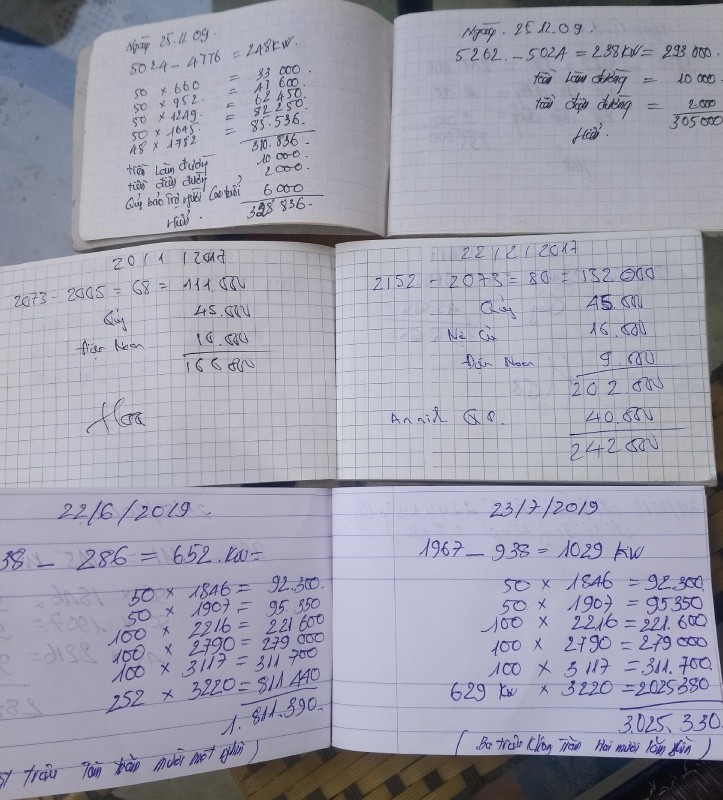 Ngày 25.11.09.
5024 - 4776 = 248KW.
50 × 660 = 33 000.
50 × 952 = 47 600.
50 × 1249 = 62 450.
50 × 1645 = 82 250.
48 × 1782 = 85.536.
310.836.
tiền làm đường 10 000.
tiền điện đường 2 000.
Qũy bảo trợ người cao tuổi 6 000
Hiếu. 328 836.
Ngày. 25.12.09.
5262. - 5024 = 238KW = 293 000.
tiền làm đường = 10 000.
tiền điện đường = 2.000
Hiếu. 305000
20/1/2017
2073 - 2005 = 68 = 111.000
Qũy 45.000
10.000
166 000
22/2/2017
2152 - 2073 = 80 = 132 000
Qũy 45.000
Nợ Cũ 16.000
9.000
202 000
40.000
242 000
22/6/2019.
38 - 286 = 652. KW=
50 × 1846 = 92.300.
50 × 1907 = 95 350
100 × 2216 = 221 600
100 × 2790 = 279 000
100 × 3117 = 311 700
252 × 3220 = 811 440
1. 811.390.
triệu Tám trăm mười một nghìn)
23/7/2019
1967 - 938 = 1029 KW
50 × 1846 = 92.300.
50 × 1907 = 95350
100 × 2216 = 221.600
100 × 2790 = 279 000
100 × 3117 = 311.700
629 KW × 3220 = 2025380
3.025.330
(Ba triệu Không Trăm Hai mươi lăm nghìn)